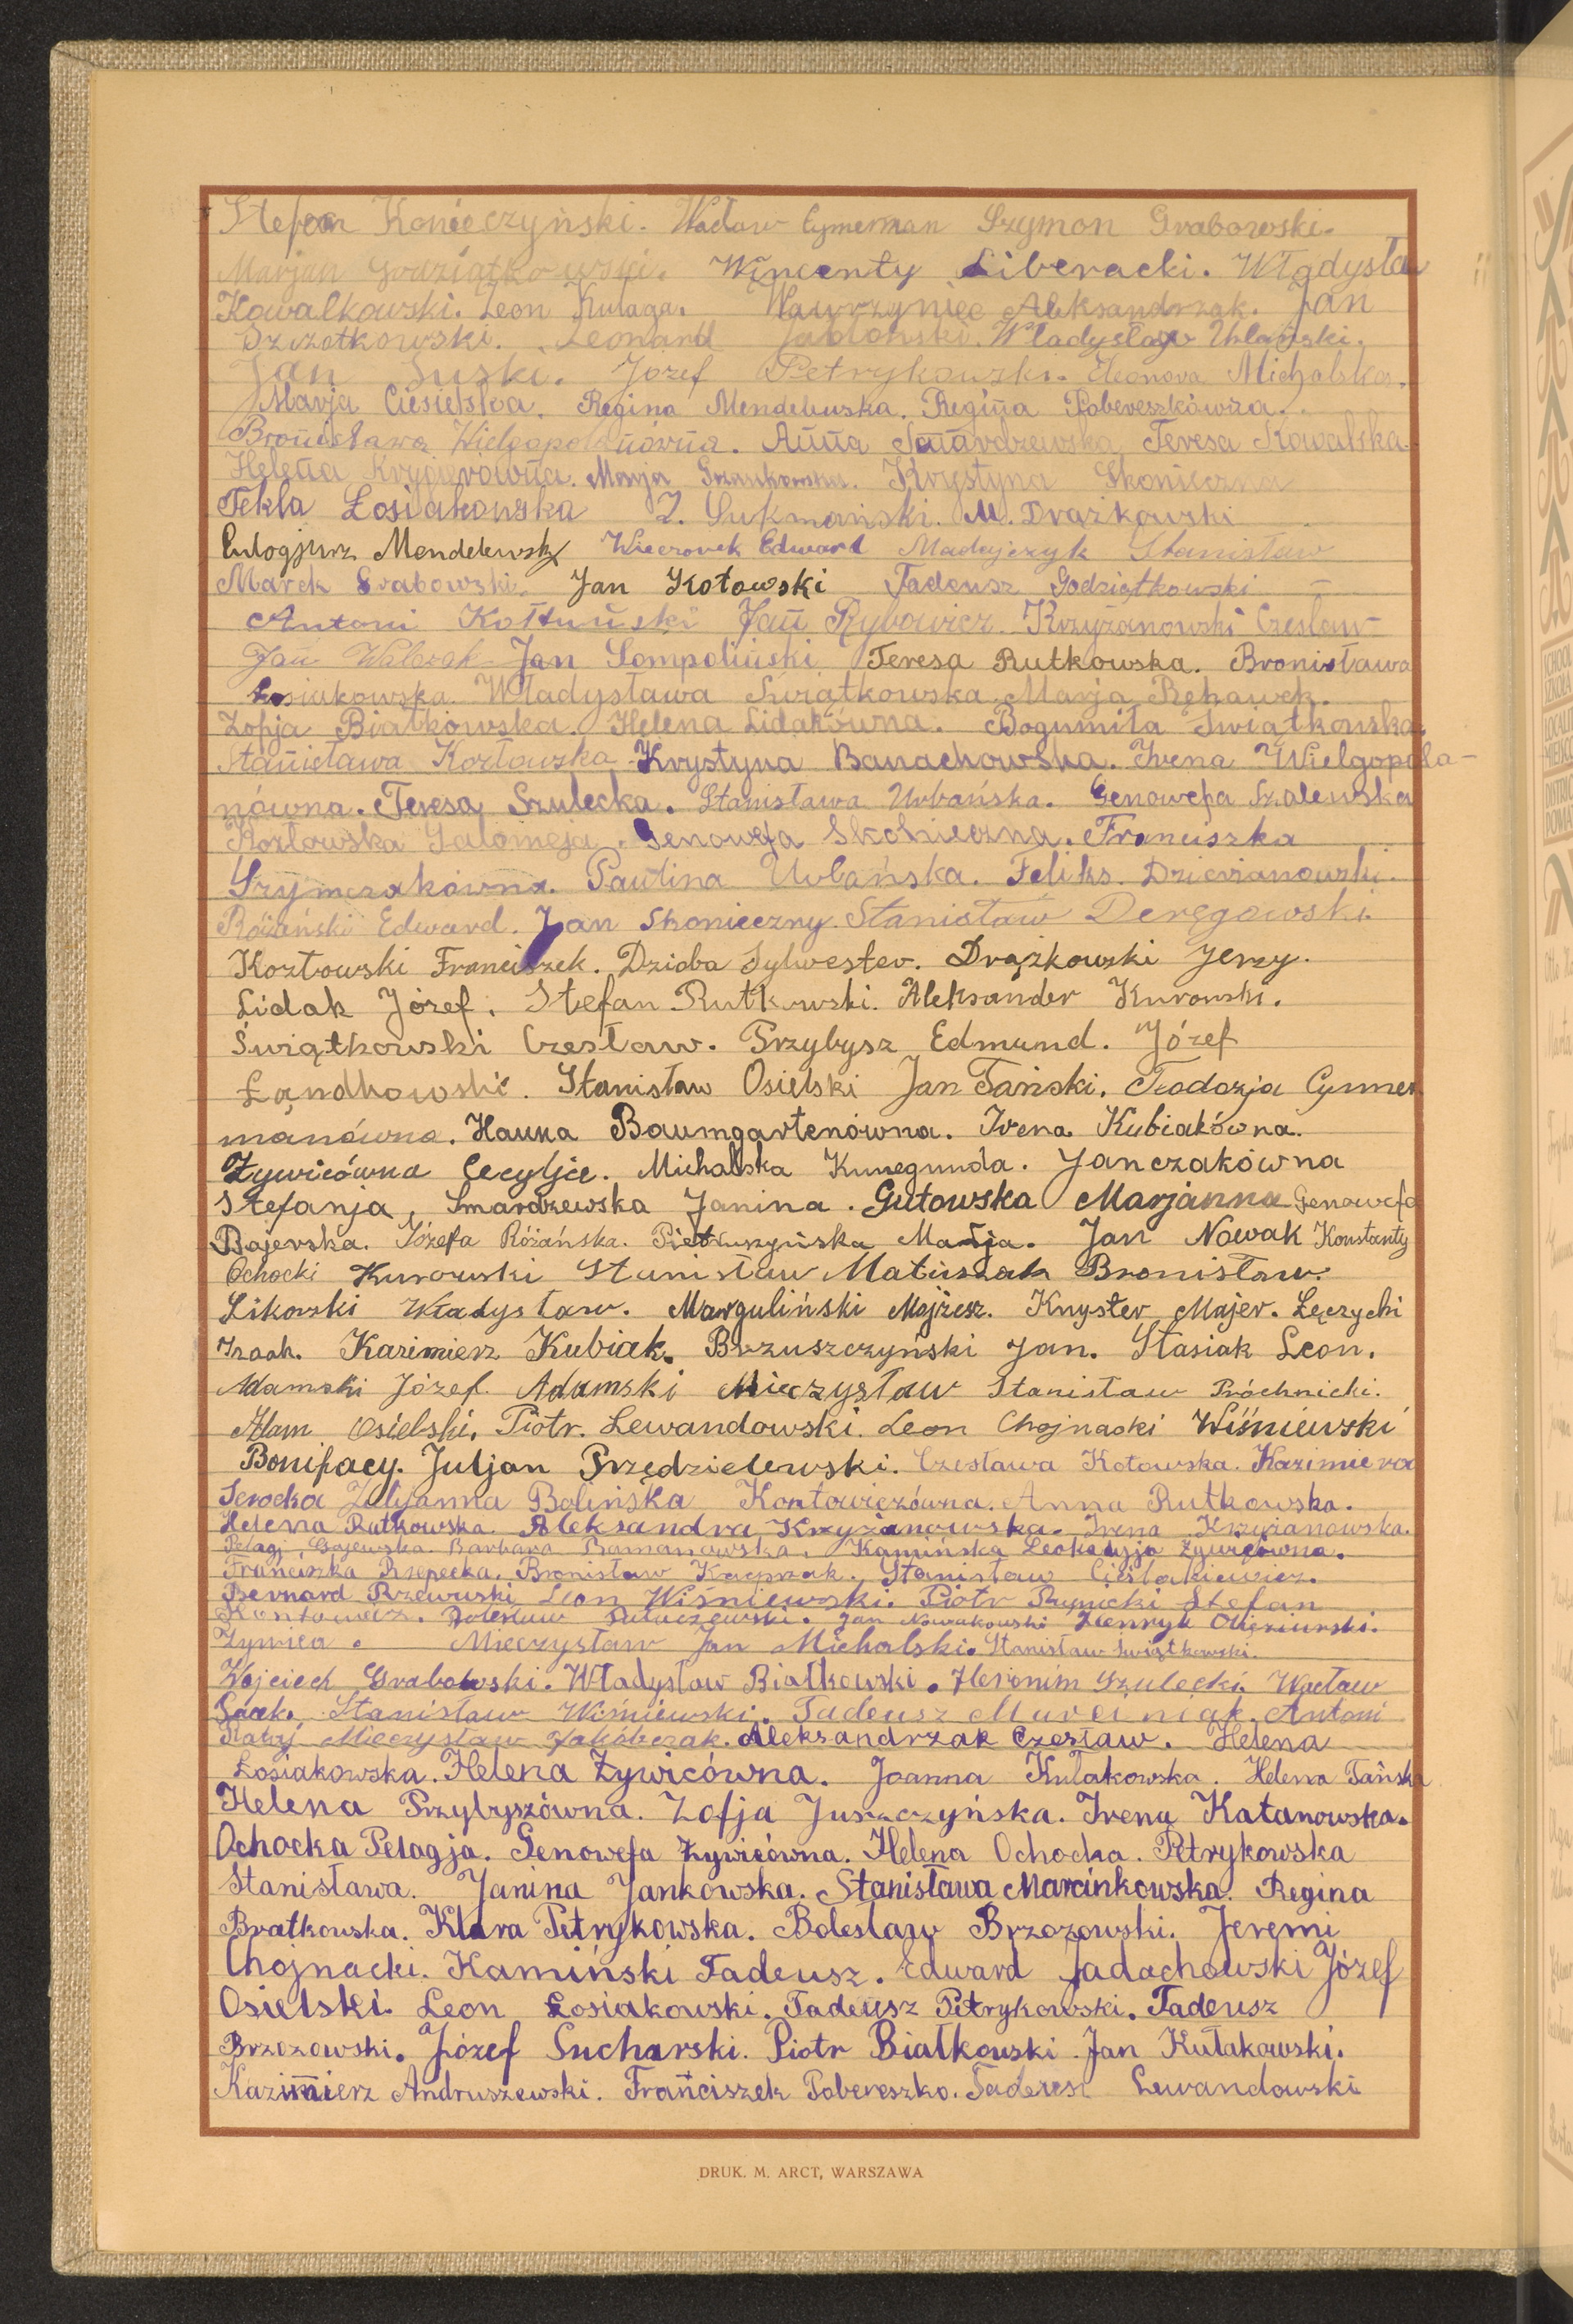 Stefan Konieczyński. Wacław Cymerman Szymon Grabowski.
Marjan Godziątkowski. Wincenty Liberacki. Władysła
Kowalkowski. Leon Kulaga. Wawrzyniec Aleksandrzak. Jan
Szczotkowski. Leonard Jabłoński. Władysław Urbański.
Jan Suski. Józef Petrykowski. Eleonora Michalska.
Marja Ciesielska. Regina Mendelewska. Regina Pobereszkówna.
Bronisława Wielgopolanówna. Anna Smardzewska Teresa Kowalska.
Helena Krygierowna. Marja Krystyna Skonieczna
Tekla Łosiakowska Z. Sukmański. M. Drążkowski
Mendelewski Wieczorek Edward Madajczyk Stanisław
Marek Grabowski. Jan Kotowski Tadeusz Godziątkowski
Antoni Kołtuński Jan Rybowicz Krzyżanowski Czesław
Jan Walczak Jan Sompoliński Teresa Rutkowska. Bronisława
Łosiakowska. Władysława Świątkowska. Marja Rękawek.
Zofja Białkowska. Helena Lidakówna. Bogumiła Świątkowska.
Stanisława Kozłowska Krystyna Banachowska. Irena Wielgopola-
nówna. Teresa Szulecka. Stanisława Urbańska. Genowefa Szalewska
Kozlowska Salomeja. Genowefa Skonieczna. Franciszka
Szymczakówna. Paulina Urbańska. Feliks Dzierżanowski.
Różański Edward. Jan Skonieczny. Stanisław Deręgowski
Kozłowski Franciszek. Dzioba Sylwester. Drążkowski Jerzy.
Lidak Józef. Stefan Rutkowski. Aleksander Kurowski.
Świątkowski Czesław. Przybysz Edmund. Józef
Łandkowski. Stanisław Osielski Jan Tański. Teodozja Cymer
manówna. Hanna Baumgartenówna. Irena Kubiakówna.
Żywicówna Cecylja. Michalska Kunegunda. Janczakówna
Stefanja, Smardzewska Janina. Gutowska Marjanna Genowefa
Bajerska. Józefa Różańska. Pietruszyńska Marja. Jan Nowak Konstanty
Ochocki Kurowski Stanisław Matuszak Bronisław.
Likowski Władysław. Marguliński Mojżesz. Knyster Majer. Łęczycki
Izaak. Kazimierz Kubiak. Brzuszczyński Jan. Stasiak Leon.
Adamski Józef. Adamski Mieczysław Stanisław Próchnicki.
Adam Osielski, Piotr. Lewandowski. Leon Chojnacki Wiśniewski
Bonifacy. Juljan Przędzielewski. Czesława Kotowska. Kazimiera
Serocka Bolińska Kontowiczówna. Anna Rutkowska.
Helena Rutkowska. Aleksandra Krzyżanowska. Irena Krzyżanowska.
Pelagj Gajewska. Barbara Kamińska Leokadyja Żywicówna.
Franciszka Rzepecka. Bronisław Kacprzak. Stanisław Cieślakiewicz.
Bernard Rzewuski Leon Wiśniewski. Piotr Rupnicki Stefan
Kontowicz. Bolesław Jan Nowakowski Henryk
Żywica. Mieczysław Jan Michalski. Stanisław Świątkowski.
Wojciech Grabowski. Władysław Białkowski. Heronim Szulecki. Wacław
Stanisław Wiśniewski. Tadeusz Marciniak. Antoni
Mieczysław Jakóbczak. Aleksandrzak Czesław. Helena
Łosiakowska. Helena Żywicówna. Joanna Kułakowska. Helena Tańska
Helena Przybyszówna. Zofja Juszczyńska. Irena Katanowska.
Ochocka Pelagja. Genowefa Żywicówna. Helena Ochocka. Petrykowska
Stanisława. Janina Jankowska. Stanisława Marcinkowska. Regina
Bratkowska. Klara Petrykowska. Bolesław Brzozowski. Jeremi
Chojnacki. Kamiński Tadeusz. Edward Jadachowski Józef
Osielski. Leon Łosiakowski. Tadeusz Petrykowski. Tadeusz
Brzozowski. Józef Sucharski. Piotr Białkowski. Jan Kułakowski.
Kazimierz Andruszewski. Franciszek Pobereszko. Tadeusz Lewandowski
DRUK. M. ARCT, WARSZAWA